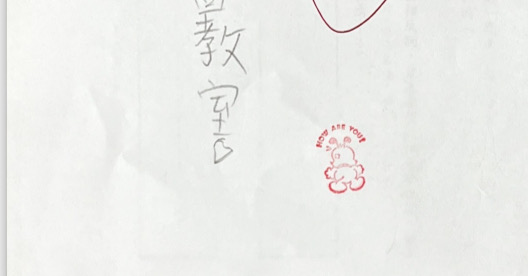 教室
HOW ARE YOU?